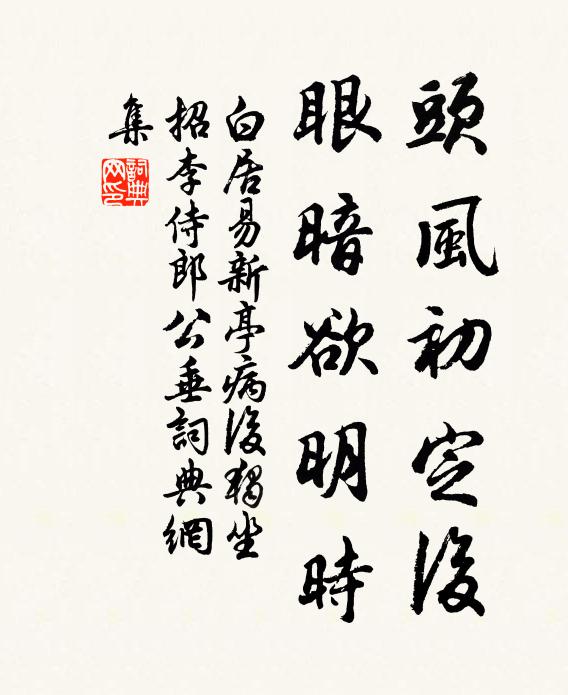 頭風初定後
眼暗欲明時
白居易新亭病後獨坐
招李侍郎公垂詞典網
集
詞典网印